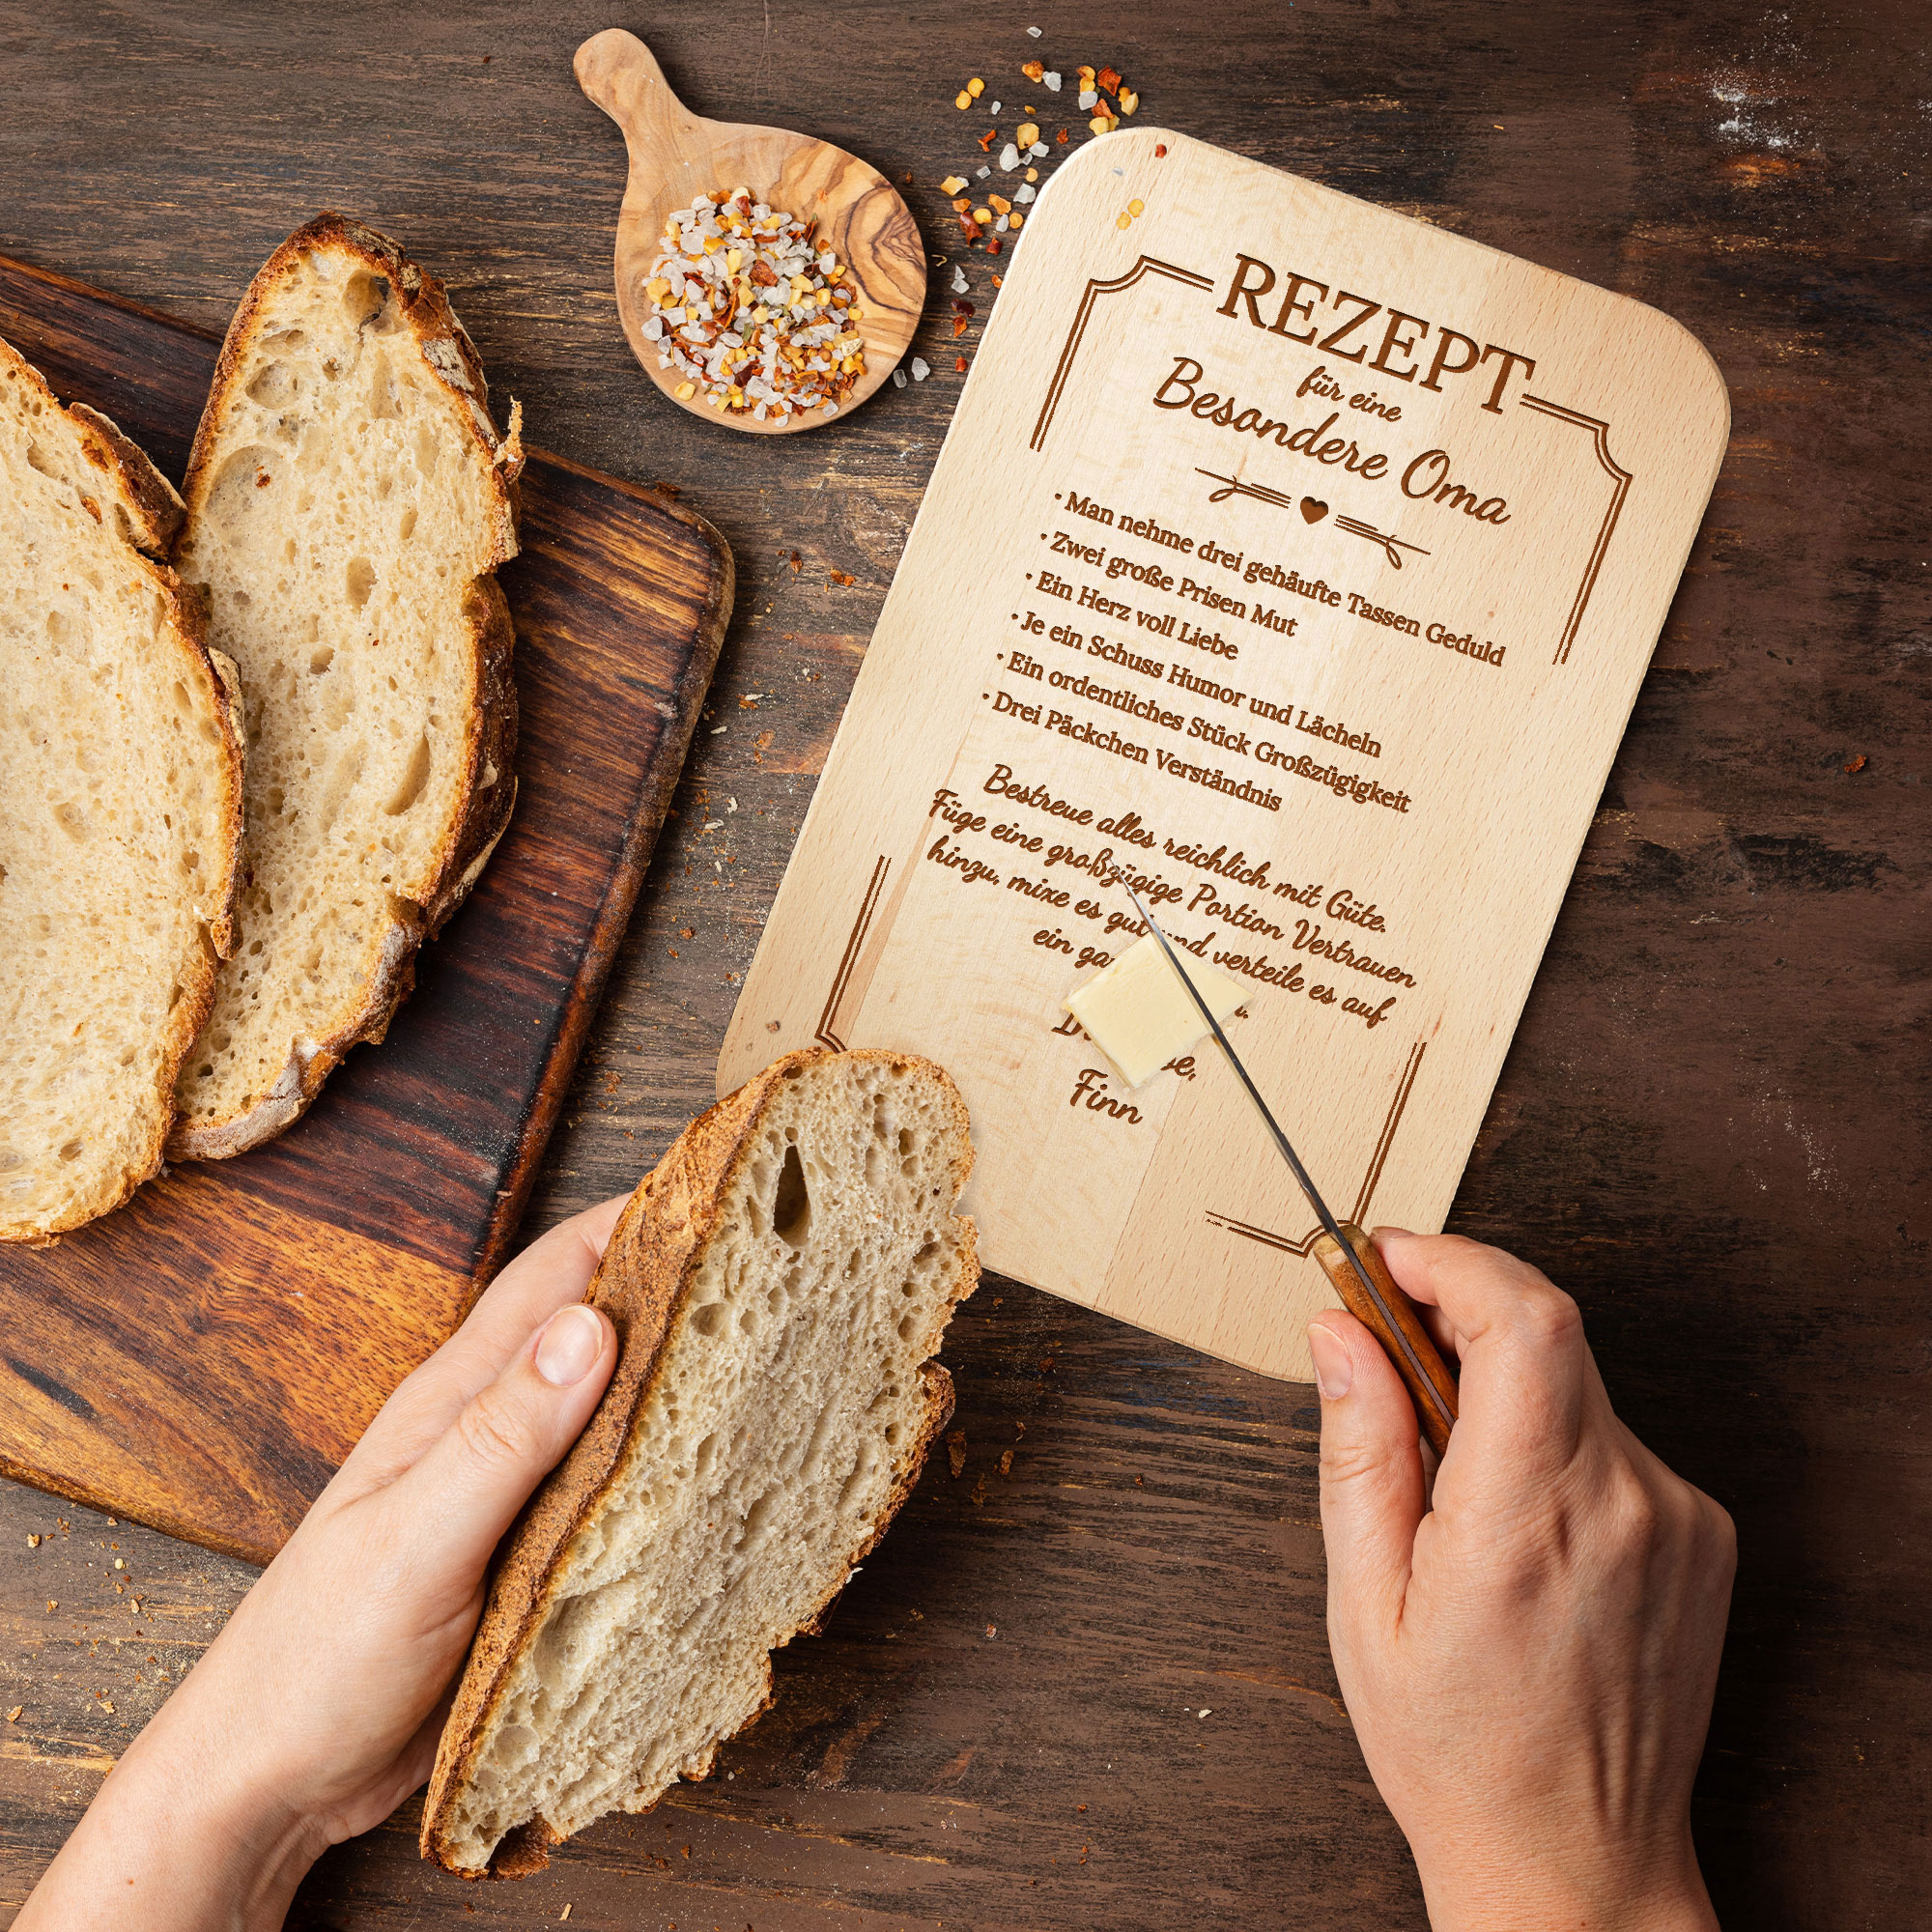 REZEPT
für eine
Besondere Oma
• Man nehme drei gehäufte Tassen Geduld
• Zwei große Prisen Mut
• Ein Herz voll Liebe
• Je ein Schuss Humor und Lächeln
• Ein ordentliches Stück Großzügigkeit
• Drei Päckchen Verständnis
Bestreue alles reichlich mit Güte.
Füge eine großzügige Portion Vertrauen
hinzu, mixe es gut und verteile es auf
ein
Finn